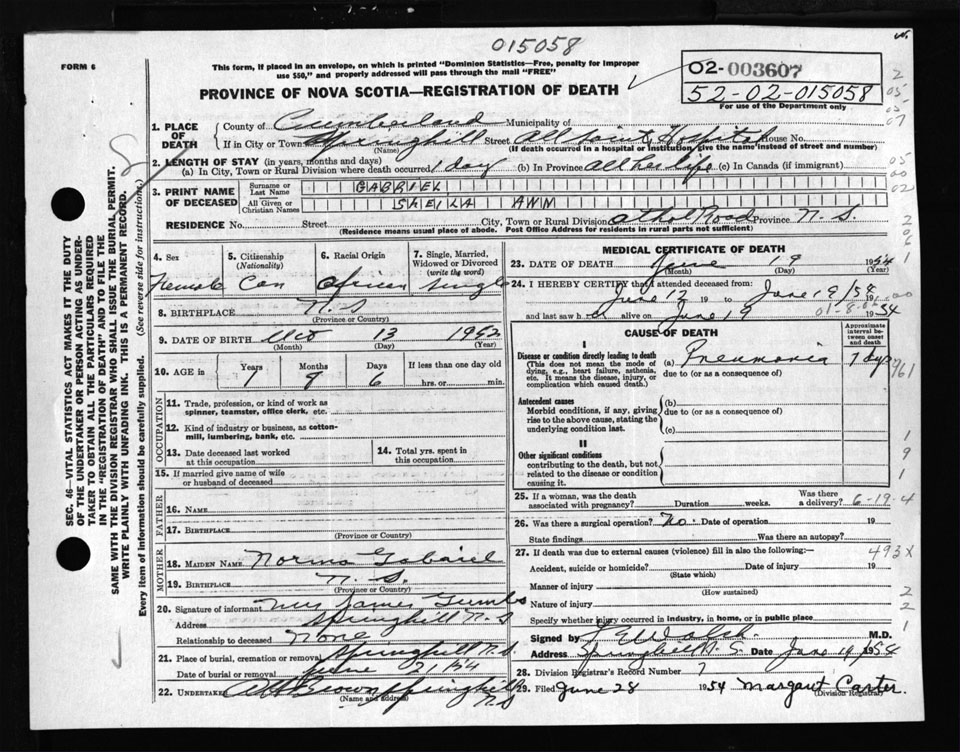 015058
FORM 6
This form, if placed in an envelope, on which is printed "Dominion Statistics—Free, penalty for improper
use $50," and properly addressed will pass through the mail "FREE"
02-003607
52-02-015058
For use of the Department only
PROVINCE OF NOVA SCOTIA—REGISTRATION OF DEATH
1. PLACE OF DEATH
County of Cumberland Municipality of
If in City or Town Springhill Street All Saints Hospital House No.
(Name) (If death occurred in a hospital or institution, give the name instead of street and number)
2. LENGTH OF STAY (in years, months and days)
(a) In City, Town or Rural Division where death occurred 1 day (b) In Province All her life (c) In Canada (if immigrant)
3. PRINT NAME OF DECEASED
Surname or Last Name GABRIEL
All Given or Christian Names SHEILA ANN
RESIDENCE No. Street City, Town or Rural Division Athol Road Province N. S.
(Residence means usual place of abode. Post Office Address for residents in rural parts not sufficient)
4. Sex Female
5. Citizenship (Nationality) Can
6. Racial Origin African
7. Single, Married, Widowed or Divorced (write the word) Single
8. BIRTHPLACE N.S
(Province or Country)
9. DATE OF BIRTH 13 1952
(Month) (Day) (Year)
10. AGE in Years Months Days If less than one day old
1 9 6 hrs. or min.
OCCUPATION
11. Trade, profession, or kind of work as
spinner, teamster, office clerk, etc.
12. Kind of industry or business, as cotton-
mill, lumbering, bank, etc.
13. Date deceased last worked
at this occupation
14. Total yrs. spent in
this occupation
15. If married give name of wife
or husband of deceased
FATHER
16. NAME
17. BIRTHPLACE
(Province or Country)
MOTHER
18. MAIDEN NAME Norma Gabriel
19. BIRTHPLACE N. S.
(Province or Country)
20. Signature of informant Mrs James
Address Springhill N.S
Relationship to deceased None
21. Place of burial, cremation or removal Springhill N.S.
Date of burial or removal June 21/54
22. Undertaker Brown Springhill
N S
(Name and address)
MEDICAL CERTIFICATE OF DEATH
23. DATE OF DEATH June 19 1954
(Month) (Day) (Year)
24. I HEREBY CERTIFY that I attended deceased from:
June 12 19 to June 19/54
and last saw h alive on June 19 1954
CAUSE OF DEATH
Approximate interval between onset and death
I
Disease or condition directly leading to death
(This does not mean the mode of
dying, e.g., heart failure, asthenia,
etc. It means the disease, injury, or
complication which caused death.)
(a) Pneumonia 7 dys
due to (or as a consequence of)
Antecedent causes
Morbid conditions, if any, giving
rise to the above cause, stating the
underlying condition last.
(b)
due to (or as a consequence of)
(c)
II
Other significant conditions
contributing to the death, but not
related to the disease or condition
causing it.
25. If a woman, was the death
associated with pregnancy? Duration weeks. Was there
a delivery? 6-19-4
26. Was there a surgical operation? No. Date of operation 19
State findings Was there an autopsy?
27. If death was due to external causes (violence) fill in also the following:— 493X
Accident, suicide or homicide? Date of injury 19
(State which)
Manner of injury
(How sustained)
Nature of injury
Specify whether injury occurred in industry, in home, or in public place
Signed by Walsh M.D.
Address Springhill N. S. Date June 19/1954
28. Division Registrar's Record Number 7
29. Filed June 28 1954 Margaret Carter.
(Division Registrar)
SEC. 46—VITAL STATISTICS ACT MAKES IT THE DUTY
OF THE UNDERTAKER OR PERSON ACTING AS UNDER-
TAKER TO OBTAIN ALL THE PARTICULARS REQUIRED
IN THE "REGISTRATION OF DEATH" AND TO FILE THE
SAME WITH THE DIVISION REGISTRAR WHO SHALL ISSUE THE BURIAL PERMIT.
WRITE PLAINLY WITH UNFADING INK. THIS IS A PERMANENT RECORD.
Every item of information should be carefully supplied. (See reverse side for instructions)